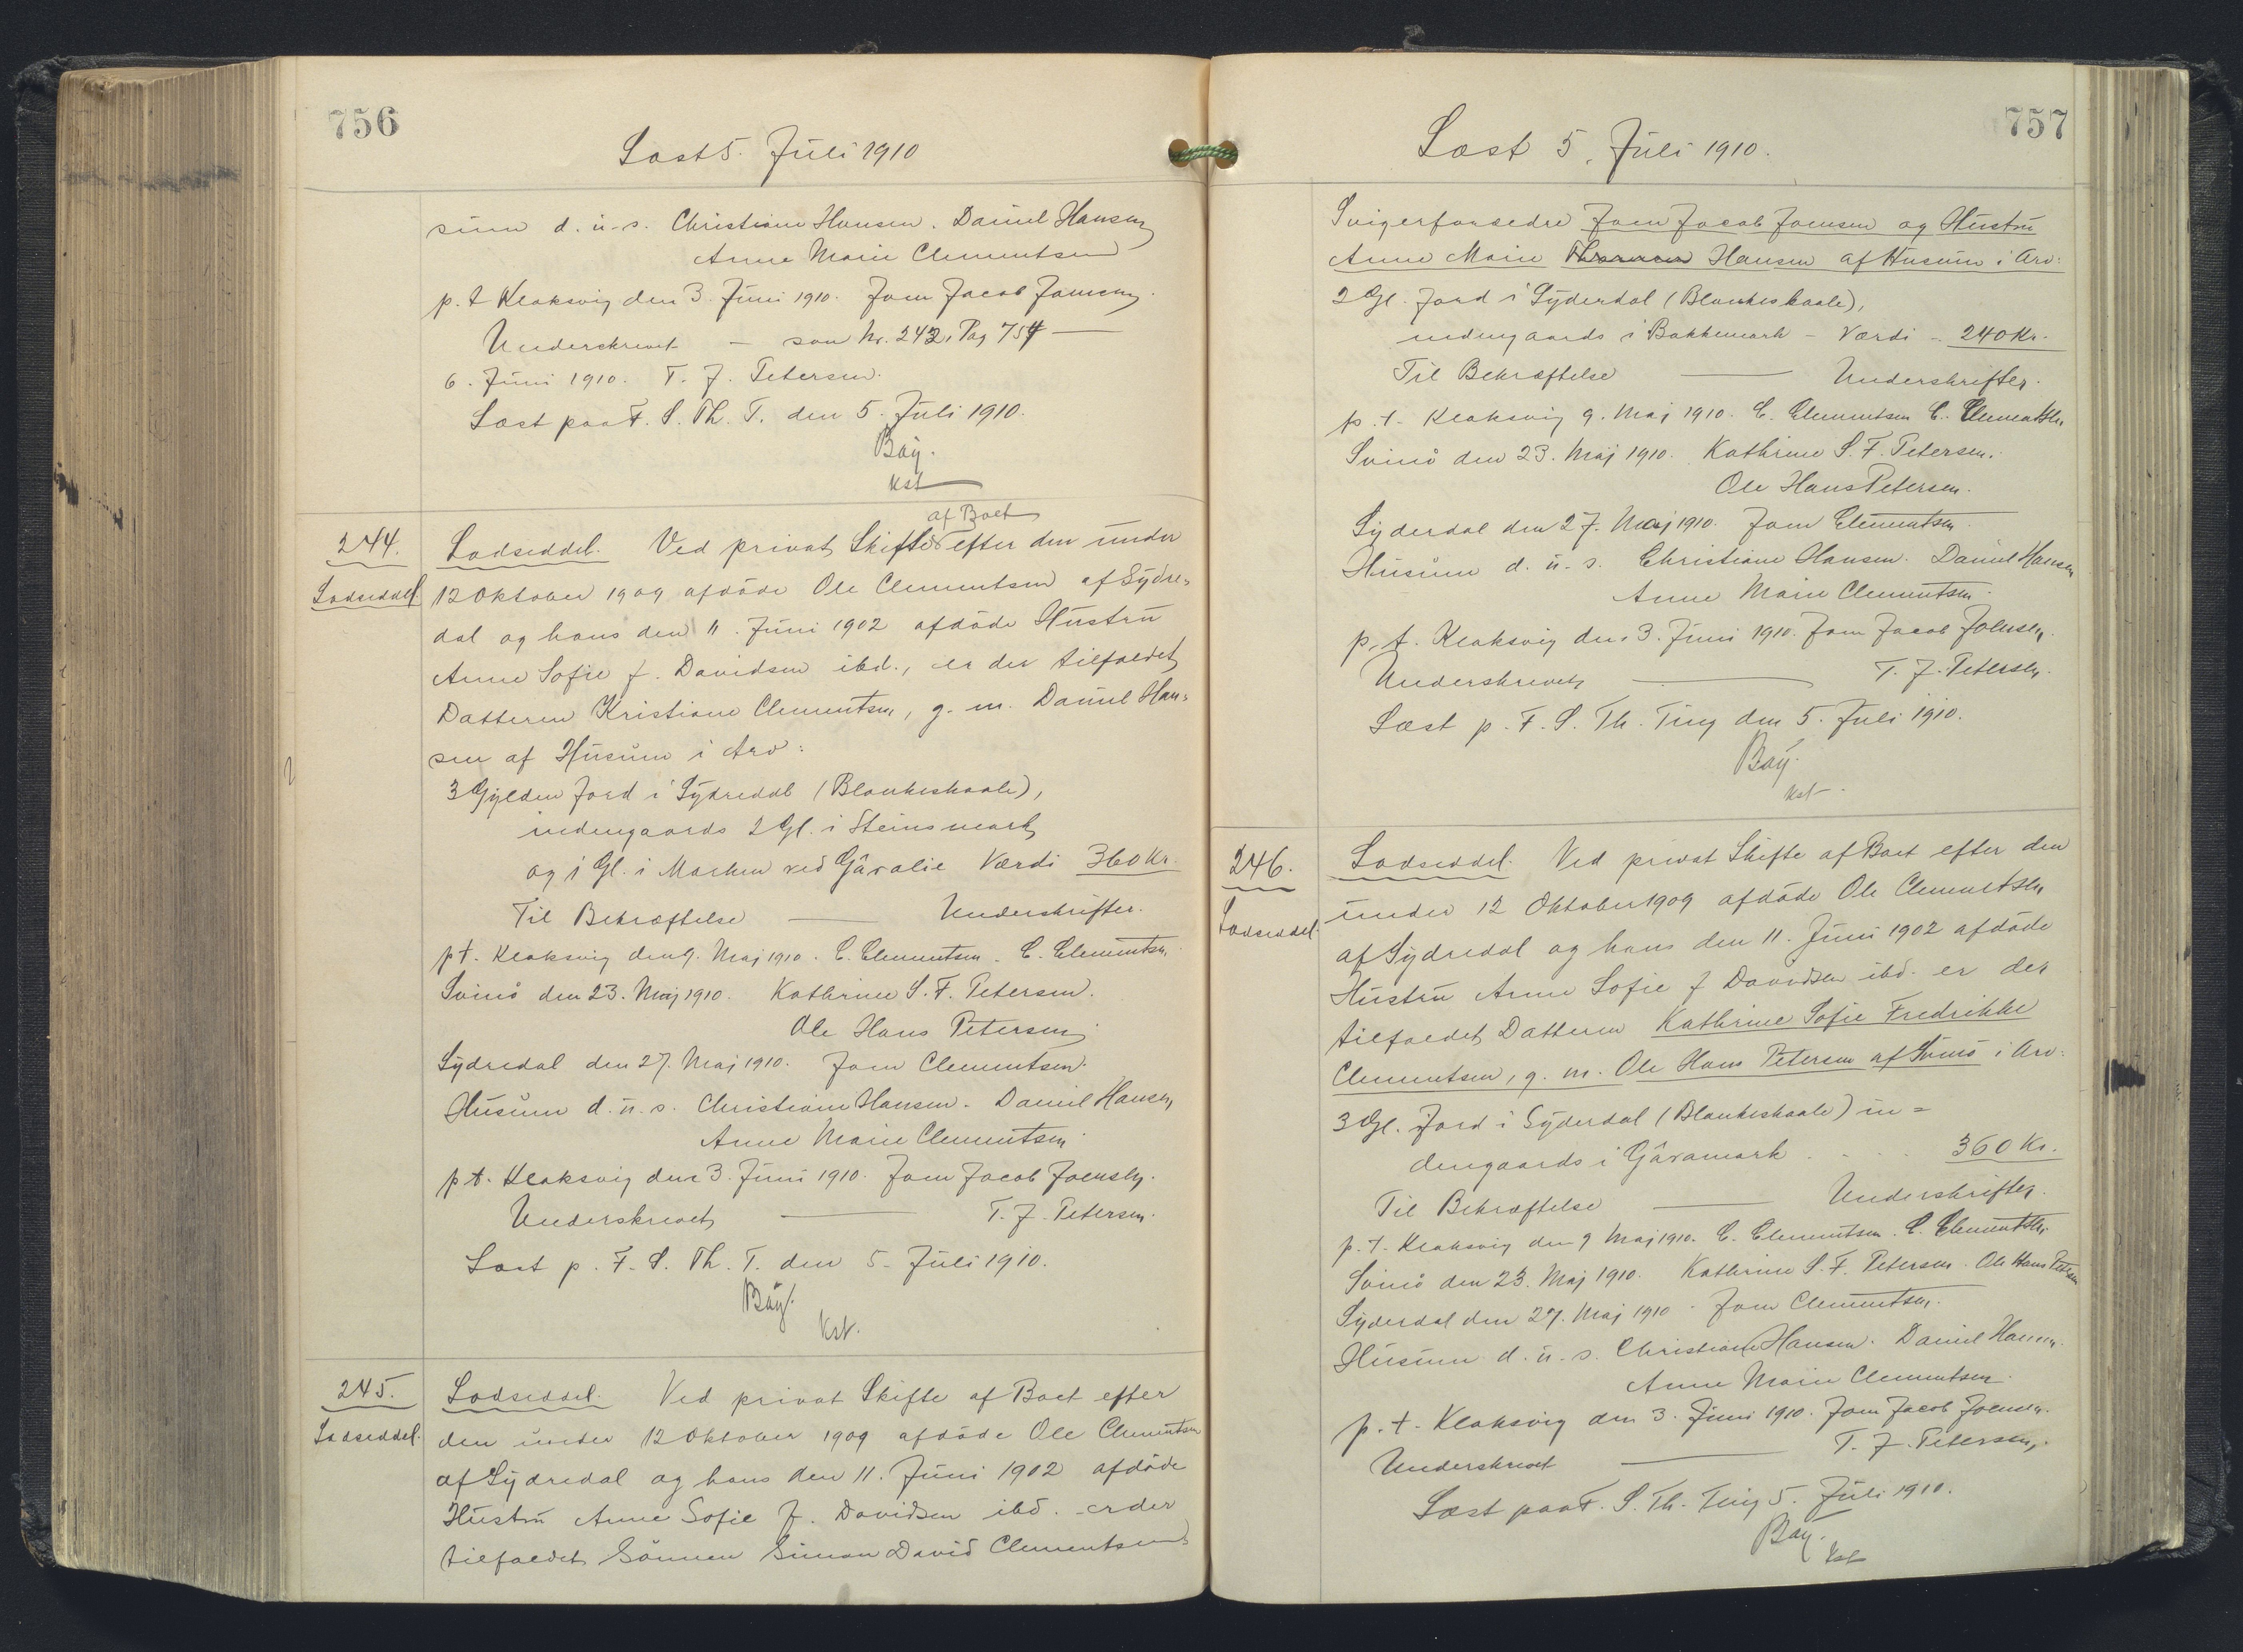 756
Læst 5. Juli 1910
sum d. u. s. Christiane Hansen. Daniel Hansen
Anne Marie Clementsen
p. t Klaksvig den 3. Juni 1910. Joen Jacob Joensen.
Underskrevet — som Nr. 242, Pag 754 —
6. Juni 1910. T. J. Petersen.
Læst paa F. S. Th. T. den 5. Juli 1910.
Bay.
kst
244.
Lodseddel
af Boet
Lodseddel. Ved privat Skifte efter den under
12 Oktober 1909 afdöde Ole Clementsen af Sydre-
dal og hans den 11. Juni 1902 afdöde Hustru
Anne Sofie f. Davidsen ibd., er der tilfaldet
Datteren Kristiane Clementsen, g. m. Daniel Han-
sen af Husum i Arv:
3 Gylden Jord i Sydredal (Blankeskaale),
indengaards 2 Gl. i Steinsmark
og 1 Gl. i Marken ved Gåralie Værdi 360 Kr.
Til Bekræftelse — Underskrifter.
p t. Klaksvig den 9. Maj 1910. C. Clementsen. C. Clementsen.
Svinö den 23. Maj 1910. Kathrine S. F. Petersen.
Ole Hans Petersen.
Sydredal den 27. Maj 1910. Joen Clementsen.
Husum d. u. s. Christiane Hansen. Daniel Hansen,
Anne Marie Clementsen.
p t. Klaksvig den 3. Juni 1910. Joen Jacob Joensen.
Underskrevet — T. J. Petersen.
Læst p. F. S. Th. T. den 5. Juli 1910.
Bay.
kst.
245.
Lodseddel.
Lodseddel. Ved privat Skifte af Boet efter
den under 12 Oktober 1909 afdöde Ole Clementsen
af Sydredal og hans den 11. Juni 1902 afdöde
Hustru Anne Sofie f. Davidsen ibd. er der
tilfaldet Sönnen Simon David Clementsens
757
Læst 5. Juli 1910.
Svigerforældre Joen Jacob Joensen og Hustru
Anne Marie Hansen af Husum i Arv:
2 Gl. Jord i Syderdal (Blankeskaale),
indengaards i Bakkemark – Værdi – 240 Kr.
Til Bekræftelse — Underskrifter.
p. t. Klaksvig 9. Maj 1910. C. Clementsen C. Clementsen
Svinö den 23. Maj 1910. Kathrine S. F. Petersen.
Ole Hans Petersen.
Syderdal den 27. Maj 1910. Joen Clementsen
Husum d. u. s. Christiane Hansen. Daniel Hansen
Anne Marie Clementsen.
p. t. Klaksvig den 3. Juni 1910. Joen Jacob Joensen.
Underskrevet — T. J. Petersen.
Læst p. F. S. Th. Ting den 5. Juli 1910.
Bay.
kst.
246.
Lodseddel.
Lodseddel. Ved privat Skifte af Boet efter den
under 12 Oktober 1909 afdöde Ole Clementsen
af Sydredal og hans den 11. Juni 1902 afdöde
Hustru Anne Sofie f Davidsen ibd. er der
tilfaldet Datteren Kathrine Sofie Fredrikke
Clementsen, g. m. Ole Hans Petersen af Svinö i Arv:
3 Gl. Jord i Syderdal (Blankeskaale) in=
dengaards i Gåramark . . . 360 Kr.
Til Bekræftelse — Underskrifter.
p. t. Klaksvig den 9 Maj 1910. C. Clementsen. C. Clementsen.
Svinö den 23. Maj 1910. Kathrine S. F. Petersen. Ole Hans Petersen
Syderdal den 27. Maj 1910. Joen Clementsen.
Husum d. u. s. Christiane Hansen. Daniel Hansen.
Anne Marie Clementsen.
p. t. Klaksvig den 3. Juni 1910. Joen Jacob Joensen.
Underskrevet — T. J. Petersen.
Læst paa F. S. Th. Ting 5. Juli 1910.
Bay.
kst